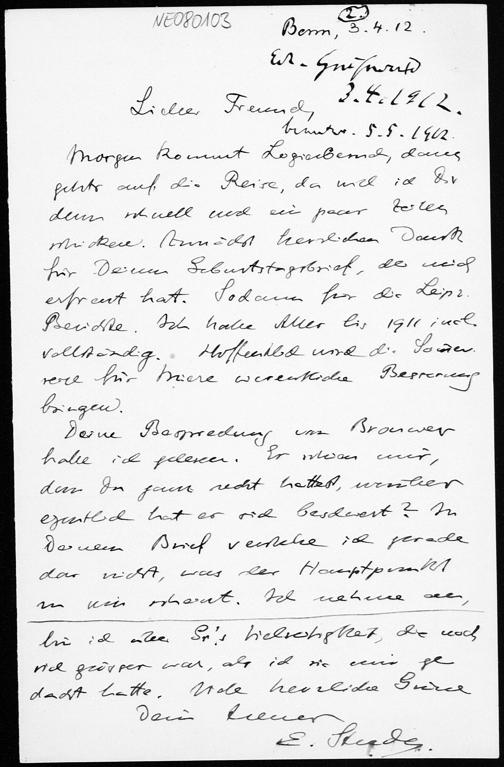 NE080103
2.
Bonn, 3.4.12.
3.4.1912.
Lieber Freund,
5.5.1912.
Morgen kommt Logierbesuch, dann
geht's auf die Reise, da will ich Dir
denn schnell noch ein paar Zeilen
schicken. Zunächst herzlichen Dank
für Deinen Geburtstagsbrief, der mich
erfreut hat. Sodann für die Leipz.
Berichte. Ich habe Alles bis 1911 incl.
vollständig. Hoffentlich wird die
reise für wesentliche Besserung
bringen.
Deine Besprechung von Brouwer
habe ich gelesen. Er schien mir,
dass Du ganz recht hattest, worüber
eigentlich hat er sich beschwert? In
Deinem Brief verstehe ich gerade
das nicht, was der Hauptpunkt
zu sein scheint. Ich nehme an,
bin ich über Vielseitigkeit, die noch
viel grösser war, als ich sie mir ge
dacht hatte. Viele herzliche Grüsse
Dein treuer
E. Study.